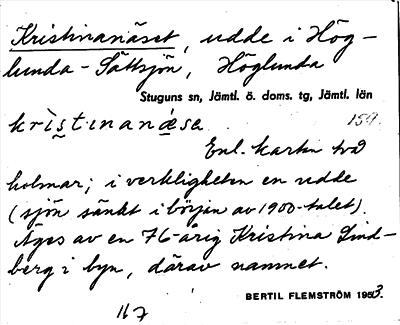 Kristinanäset, udde i Hög-
lunda-Sättsjön, Höglunda
Stuguns sn, Jämtl. ö. doms. tg, Jämtl. län
krìs̱t·ɪnanǽsa 159.
Enl. kartan två
holmar; i verkligheten en udde
(sjön sänkt i början av 1900-talet).
Äges av en 76-årig Kristina Lind-
berg i byn, därav namnet.
BERTIL FLEMSTRÖM 1953.